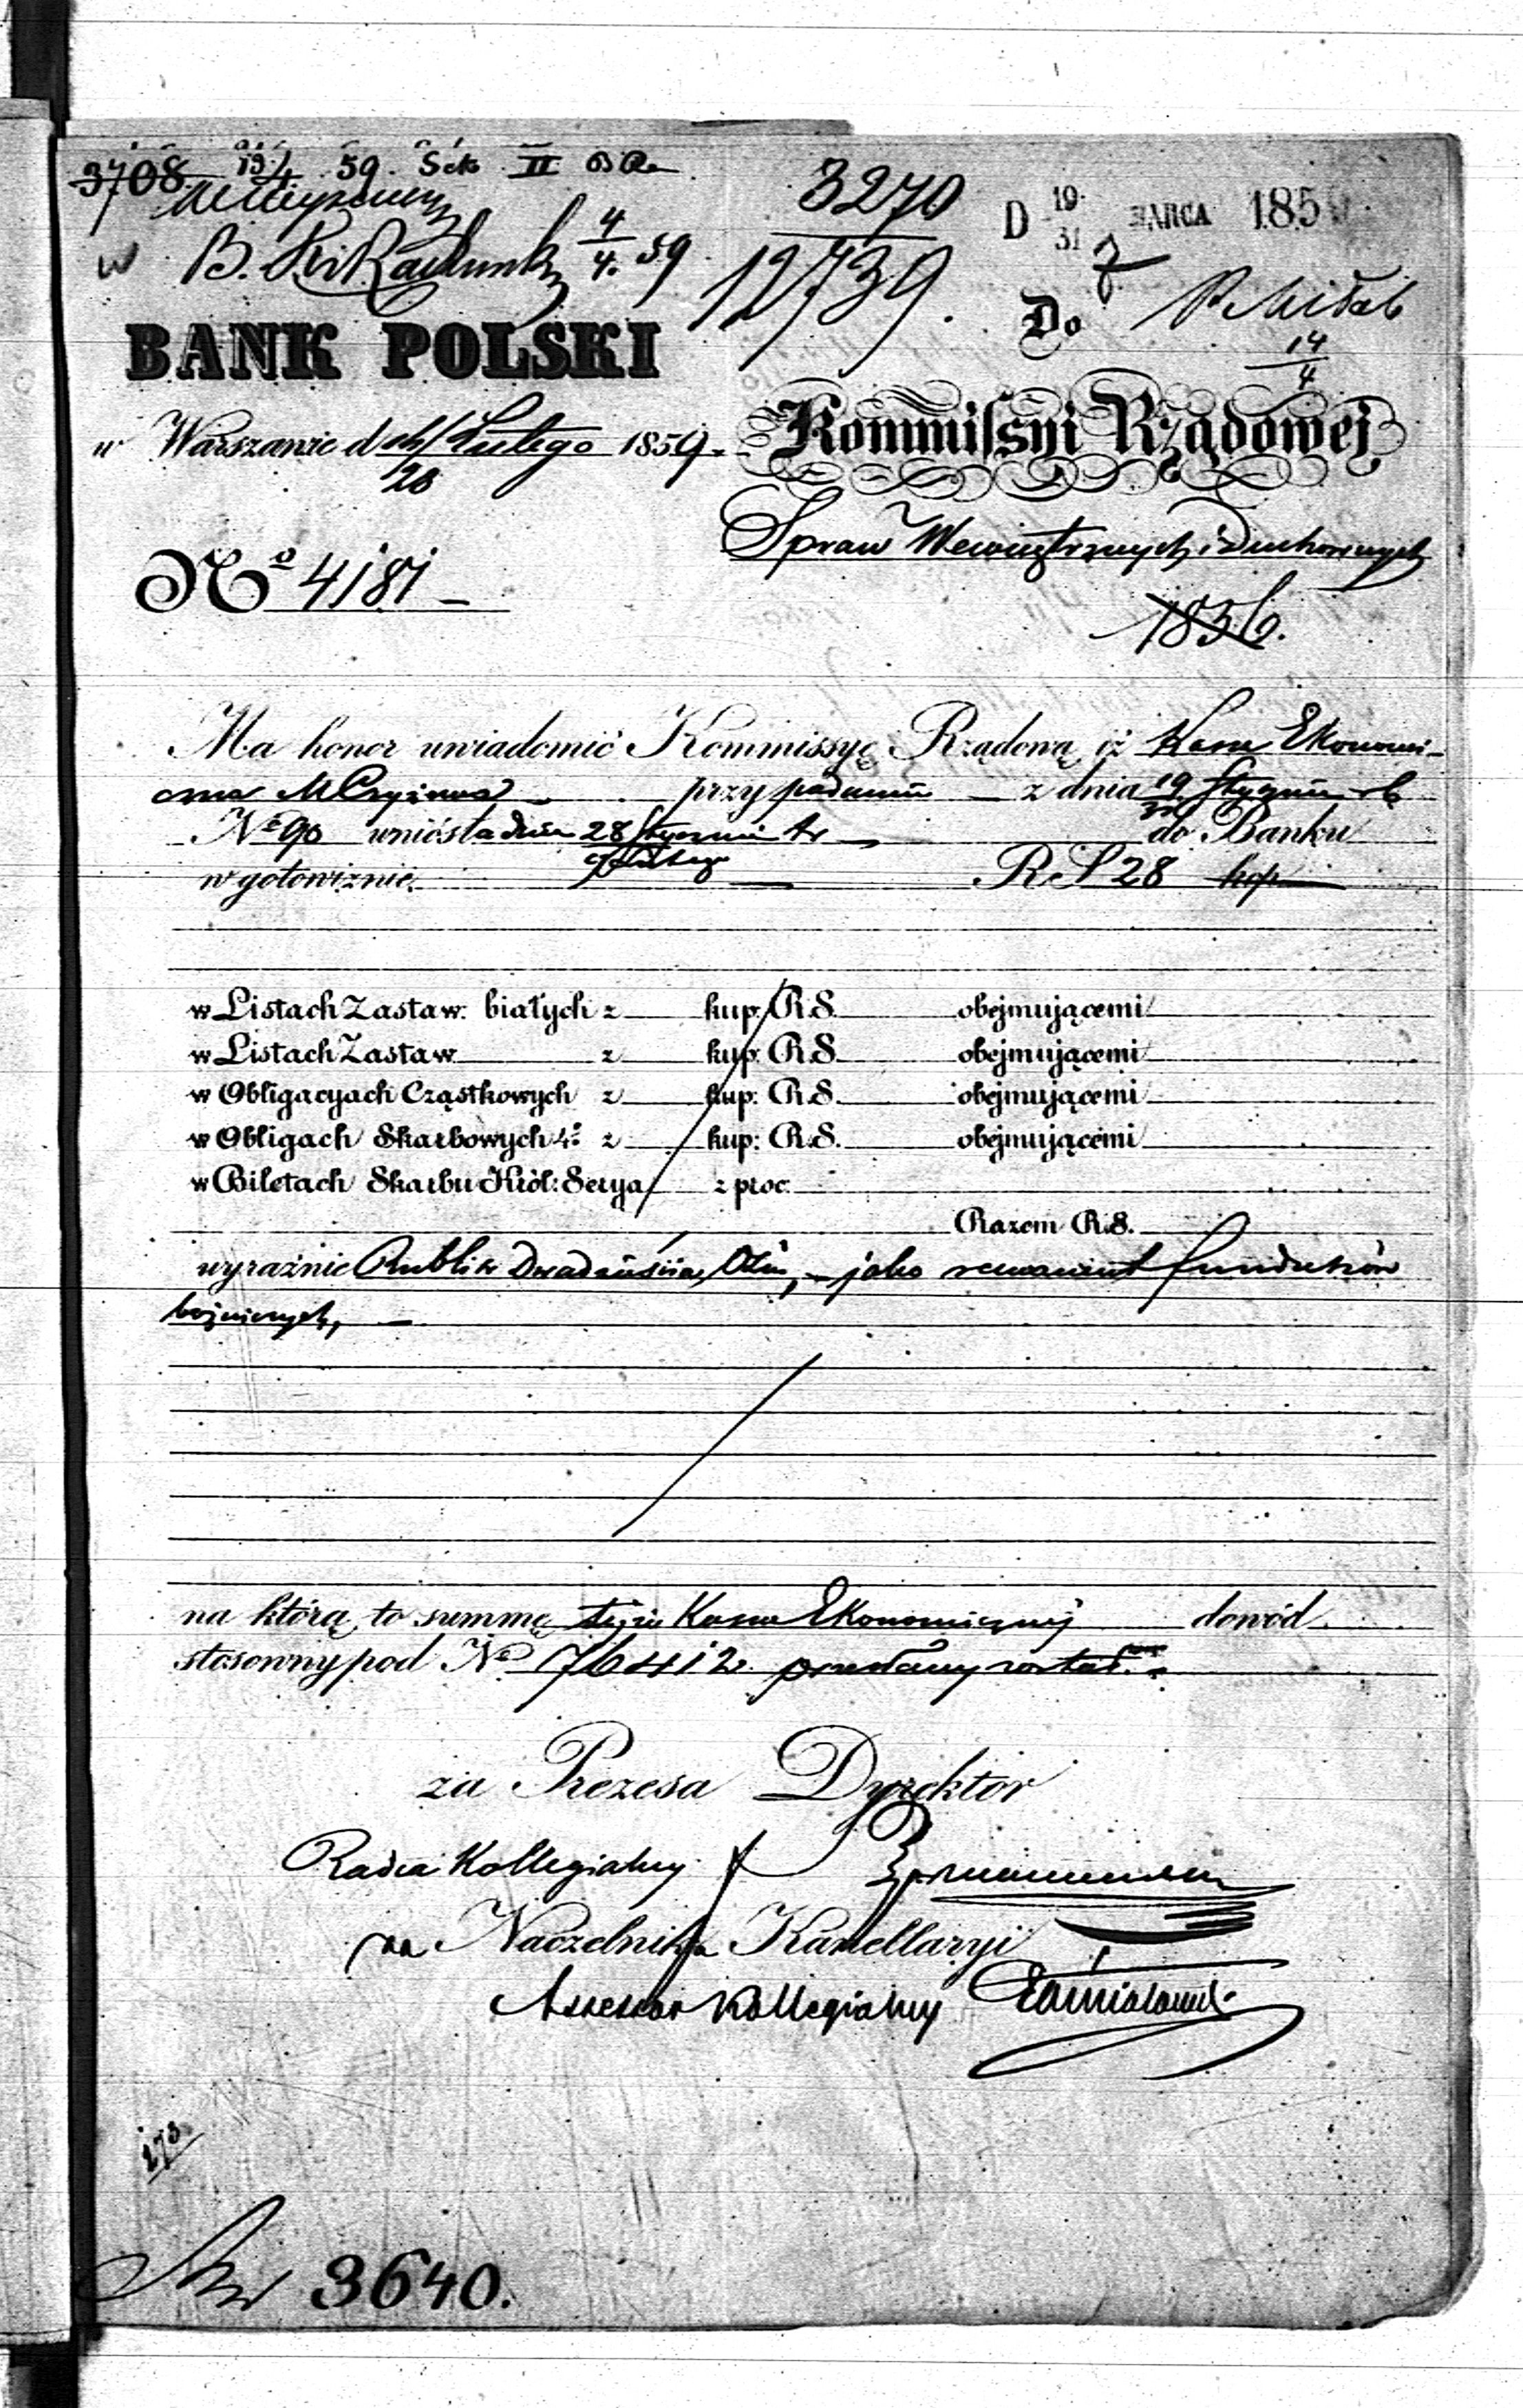 3708 59. II
w B. 4/4. 59
3270
12739.
D 19/31 MARCA 185
BANK POLSKI
Do
14/4
w Warszawie d /20 Lutego 1859.
Kommissyi Rządowej
Spraw Wewnętrznych i Duchownych
No 4181 —
1836.
Ma honor uwiadomić Kommissyę Rządową iż Kasa Ekonomi-
czna M. Czyżewa przy podaniu z dnia 19/31 Stycznia rb
No 90 wniosła dnia 28 Stycznia/9 Lutego br do Banku
w gotowiznie RS 28 kop —
w Listach Zastaw. białych z kup. R.S. obejmującemi
w Listach Zastaw. z kup. R.S. obejmującemi
w Obligacyach Cząstkowych z kup. R.S. obejmującemi
w Obligach Skarbowych 4% z kup. R.S. obejmującemi
w Biletach Skarbu Król: Serya z proc.
Razem R.S.
wyraźnie Rubli sr Dwadzieścia Ośm, — jako remanent funduszów
bożniczych, —
na którą to summę tejże Kasie Ekonomicznej dowód
stosowny pod No 76412 przesłany został. —
za Prezesa Dyrektor
Radca Kollegialny
za Naczelnika Kancellaryi
Assessor Kollegialny
273
3640.